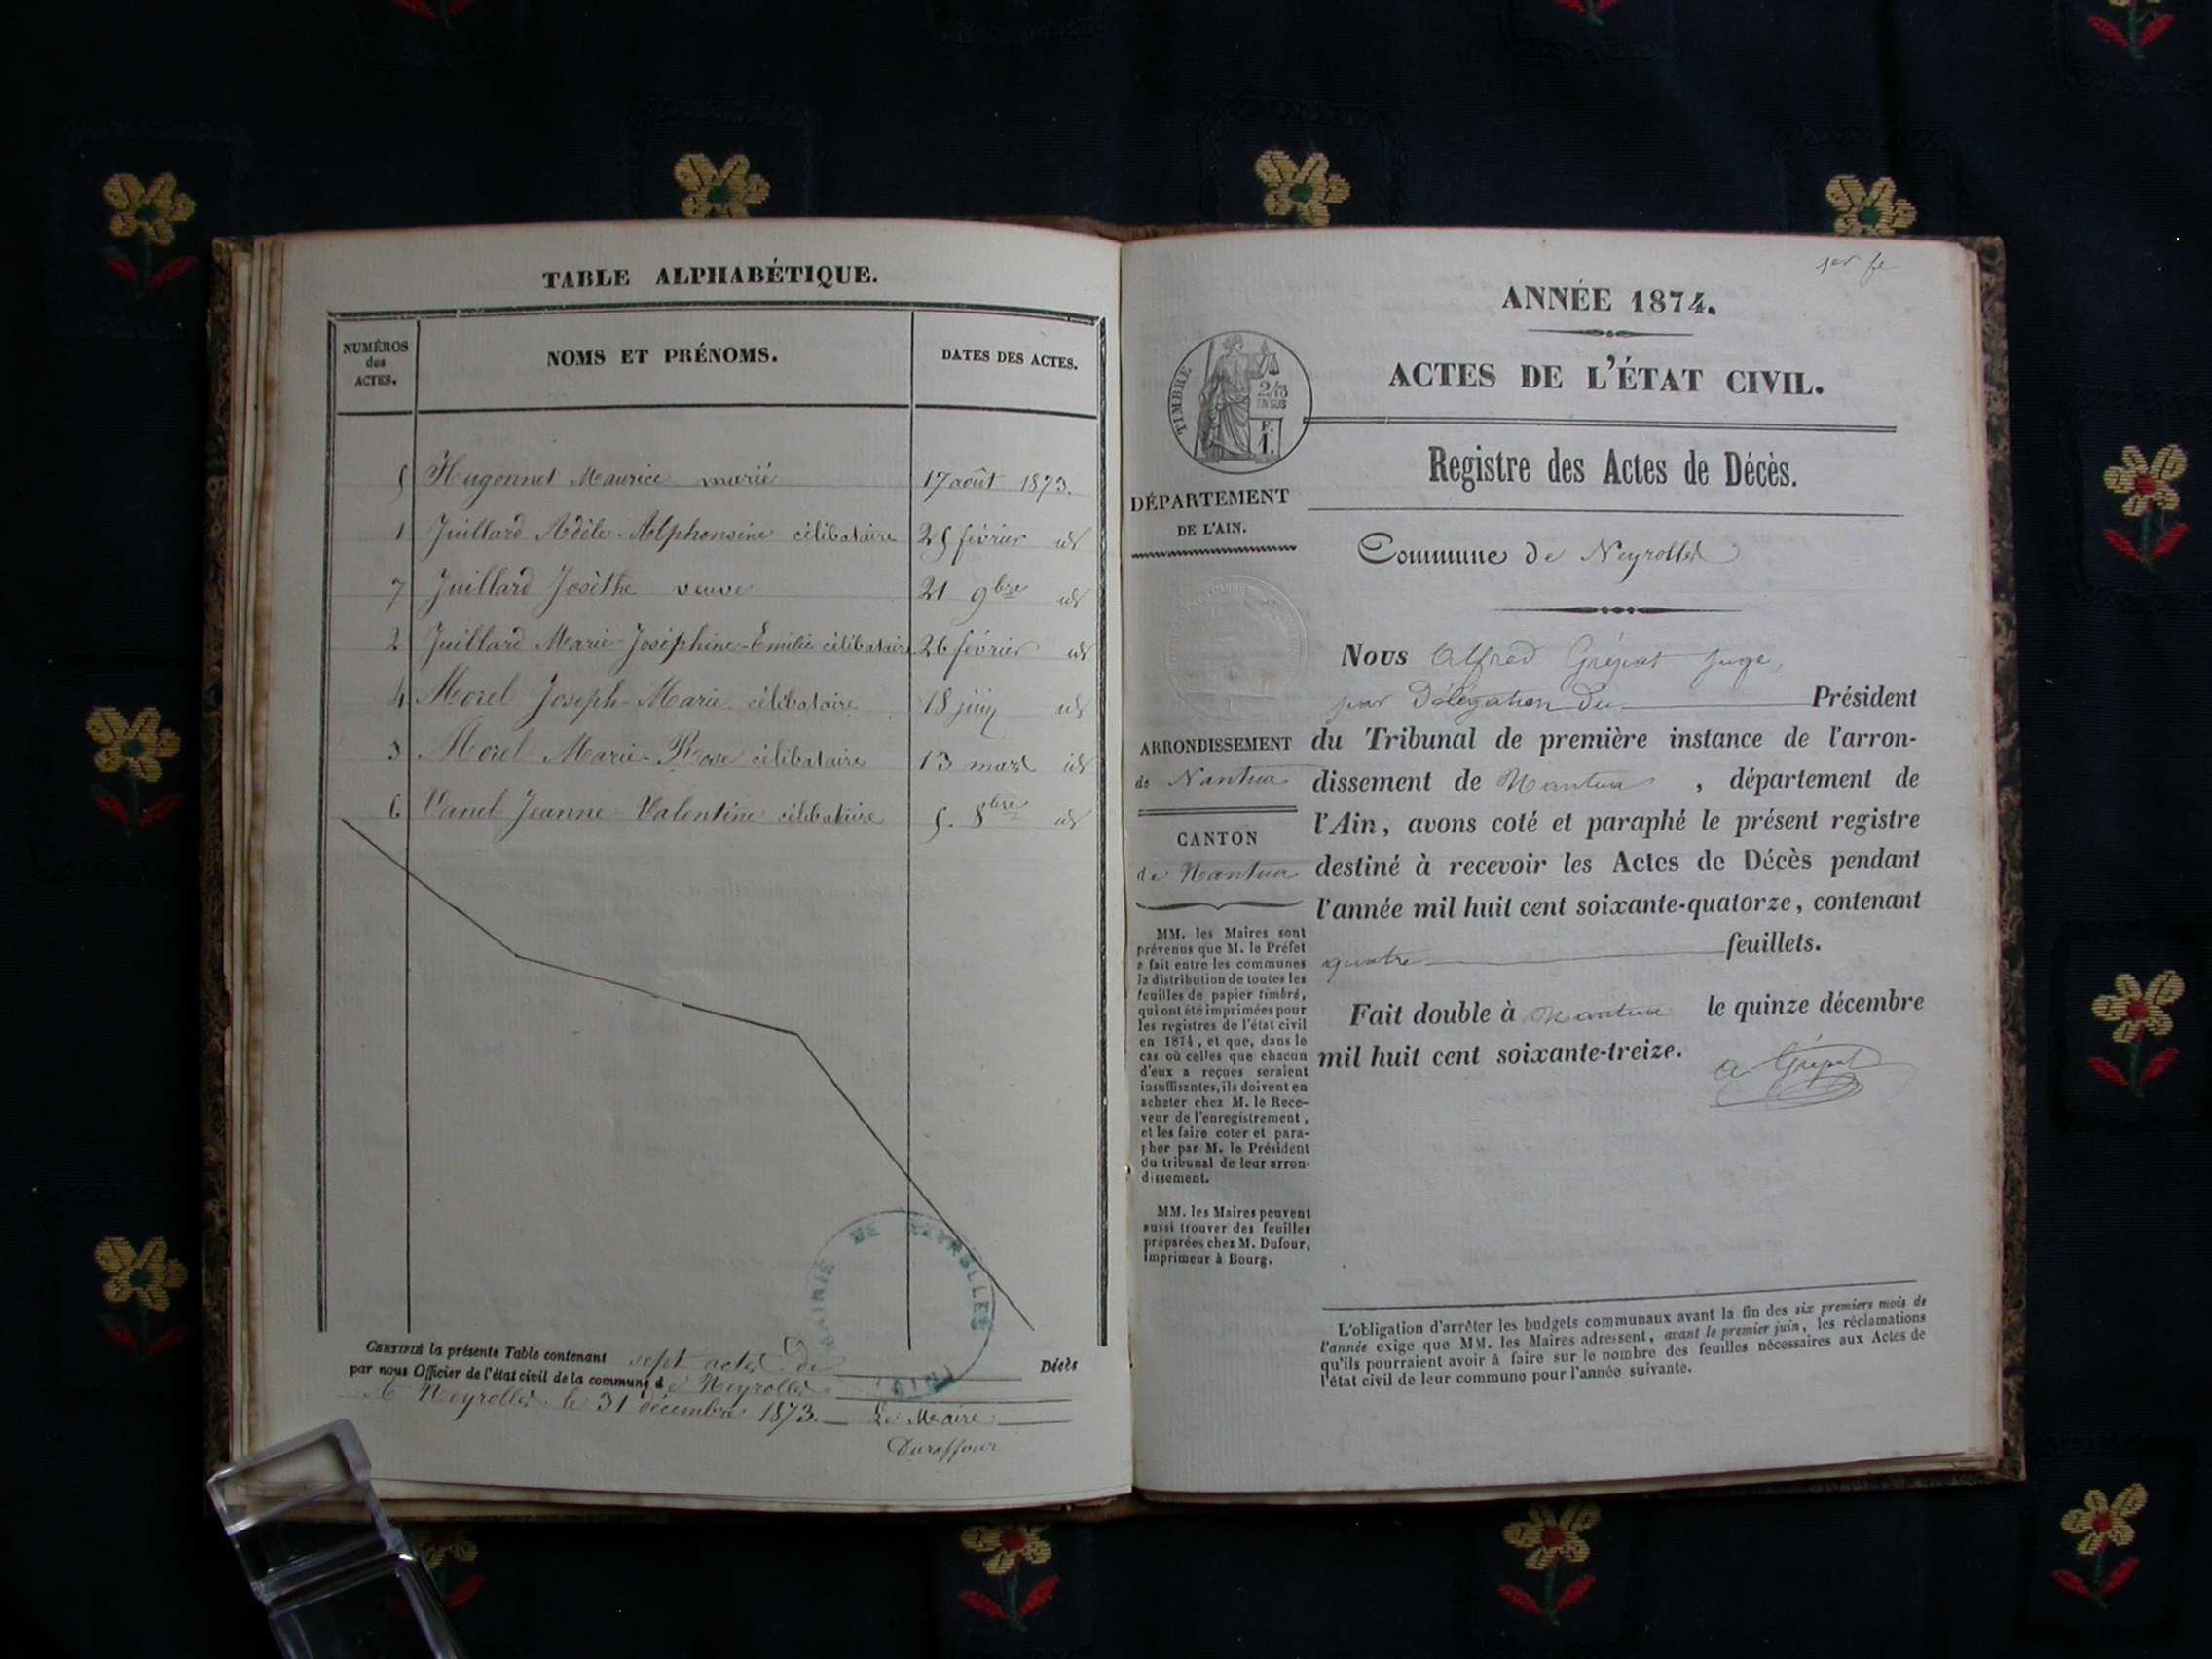 TABLE ALPHABÉTIQUE.
NUMÉROS
des
ACTES.
NOMS ET PRÉNOMS.
DATES DES ACTES.
5 Hugonnet Maurice marié 17 août 1873.
1 Juillard Adèle-Alphonsine célibataire 25 février id
7 Juillard Josèthe veuve 21 9bre id
2 Juillard Marie-Joséphine-Emilie célibataire 26 février id
4 Morel Joseph-Marie célibataire 18 juin id
3 Morel Marie-Rose célibataire 13 mars id
6 Vanel Jeanne-Valentine célibataire 5. 8bre id
MAIRIE DE NEYROLLES
(AIN)
CERTIFIÉ la présente Table contenant sept actes de Décès
par nous Officier de l'état civil de la commune de Neyrolles
A Neyrolles le 31 décembre 1873. Le Maire
Duraffour
1er fe
ANNÉE 1874.
ACTES DE L'ÉTAT CIVIL.
TIMBRE
2/10
EN SUS
F.
1.
Registre des Actes de Décès.
DÉPARTEMENT
DE L'AIN.
Commune de Neyrolles
ARRONDISSEMENT
de Nantua
CANTON
de Nantua
MM. les Maires sont
prévenus que M. le Préfet
a fait entre les communes
la distribution de toutes les
feuilles de papier timbré,
qui ont été imprimées pour
les registres de l'état civil
en 1874, et que, dans le
cas où celles que chacun
d'eux a reçues seraient
insuffisantes, ils doivent en
acheter chez M. le Rece-
veur de l'enregistrement,
et les faire coter et para-
pher par M. le Président
du tribunal de leur arron-
dissement.
MM. les Maires peuvent
aussi trouver des feuilles
préparées chez M. Dufour,
imprimeur à Bourg.
Nous Alfred Grépat juge,
par Délégation du Président
du Tribunal de première instance de l'arron-
dissement de Nantua, département de
l'Ain, avons coté et paraphé le présent registre
destiné à recevoir les Actes de Décès pendant
l'année mil huit cent soixante-quatorze, contenant
quatre feuillets.
Fait double à Nantua le quinze décembre
mil huit cent soixante-treize.
A Grépat
L'obligation d'arrêter les budgets communaux avant la fin des six premiers mois de
l'année exige que MM. les Maires adressent, avant le premier juin, les réclamations
qu'ils pourraient avoir à faire sur le nombre des feuilles nécessaires aux Actes de
l'état civil de leur commune pour l'année suivante.